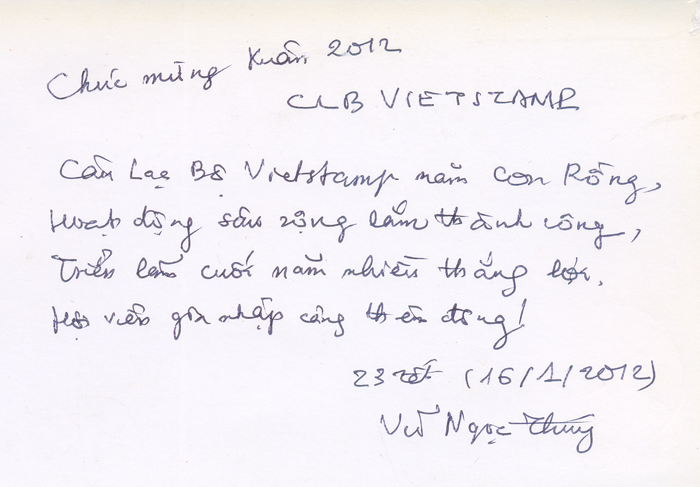 Chúc mừng Xuân 2012
CLB VIETSTAMP
Câu Lạc Bộ Vietstamp năm con Rồng,
Hoạt động sâu rộng lắm thành công,
Triển lãm cuối năm nhiều thắng lợi.
Hội viên gia nhập càng thêm đông!
23 tết (16/1/2012)
Vũ Ngọc